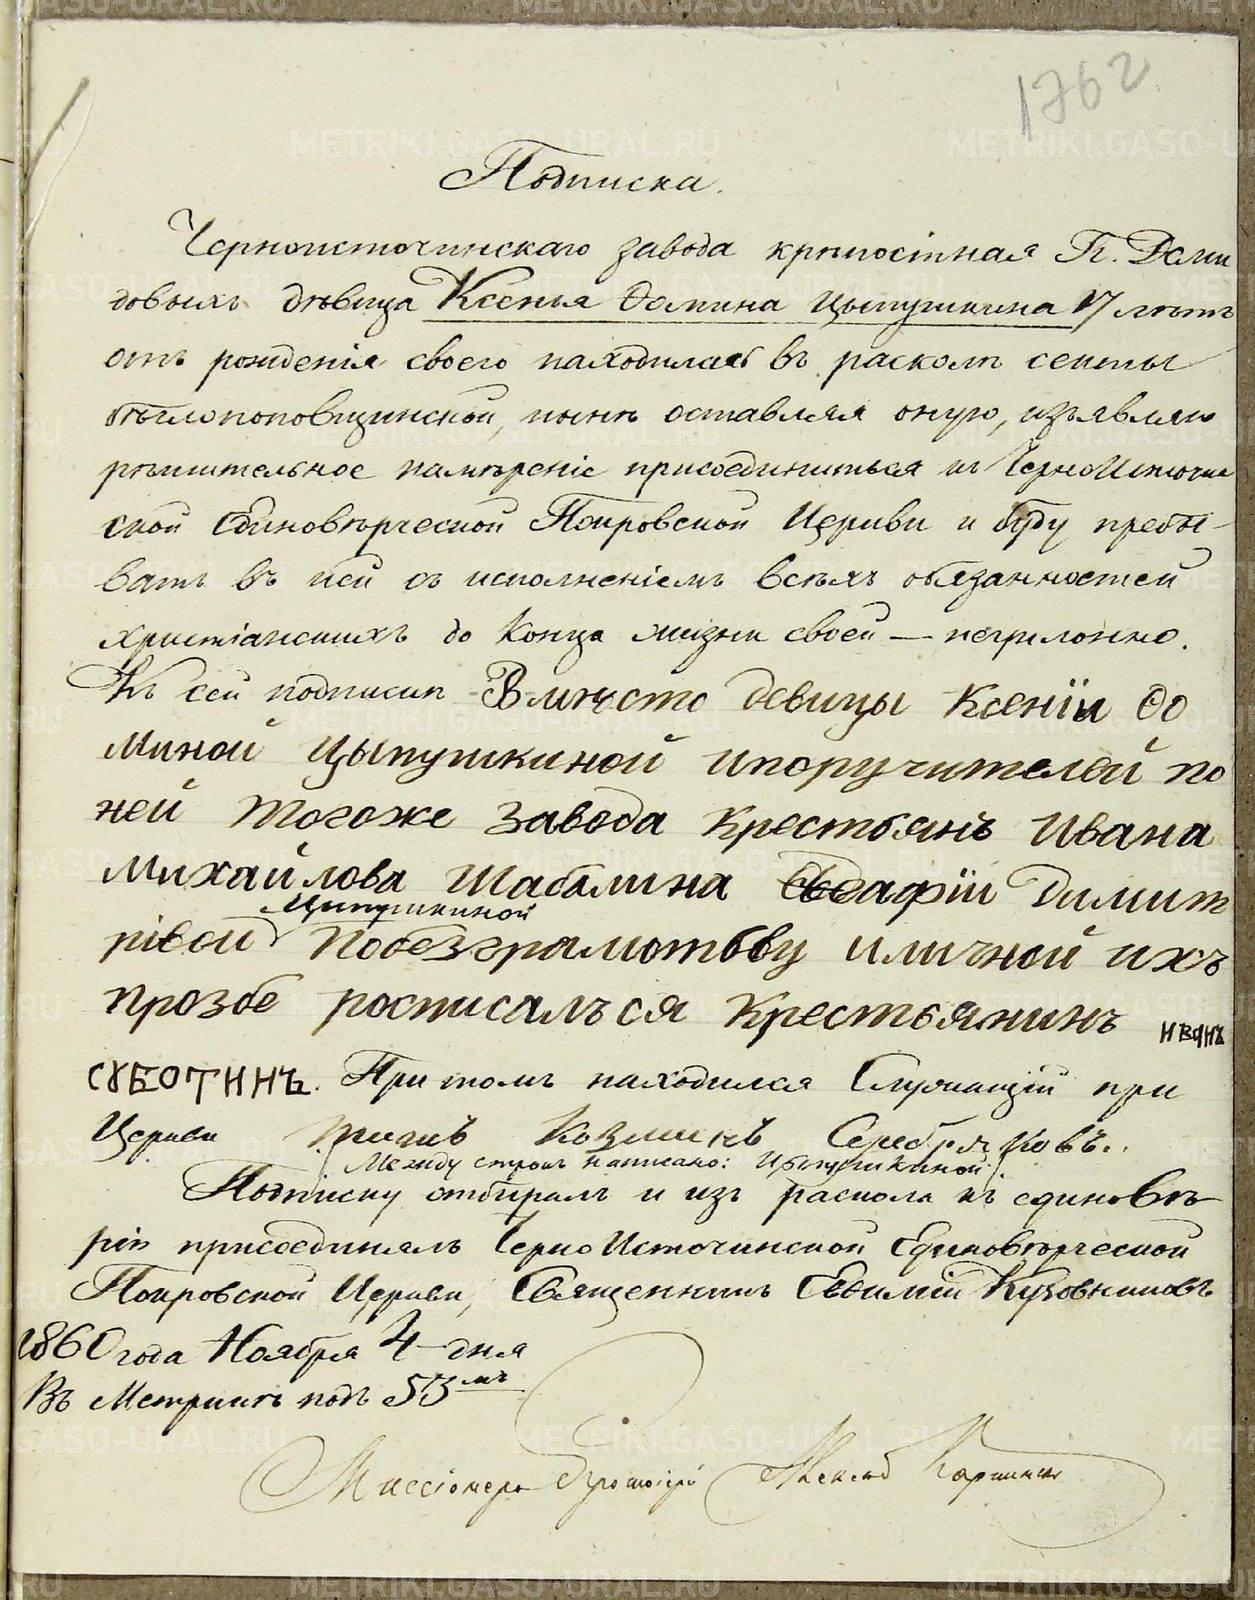 1762
Подписка.
Черноисточинскаго завода крѣпостная Гг. Деми
довыхъ дѣвица Ксенья Ѳомина Цыпушкина 17 лѣтъ
отъ рожденія своего находилась въ расколѣ секты
бѣглопоповщинской, нынѣ оставляя оную, изъявляю
рѣшительное намѣреніе присоединиться къ ЧерноИсточин
ской Единовѣрческой Покровской Церкви и буду пребы-
вать въ ней съ исполненіемъ всѣхъ обязанностей
христіанскихъ до конца жизни своей — непреложно.
Къ сей подпискѣ Вмѣсто девицы Ксеніи Ѳо
миной Цыпушкиной ипоручителей по
ней тогоже завода крестьянъ Ивана
Михайлова Шабалина Агафіи Димит
ріевой Цыпушкиной Побезграмотьву иличной ихъ
прозбе росписалъся крестьянинъ иванъ
суботинъ. При томъ находился Служащій при
Церкви Козминъ Серебряковъ.
(Между строкъ написано: Цыпушкиной)
Подписку отбиралъ и изъ раскола къ единовѣ
рію присоединялъ ЧерноИсточинской Единовѣрческой
Покровской Церкви, Священникъ Евѳимій Кузовниковъ
1860 года Ноября 4 дня
Въ Метрикѣ подъ 53мъ
Миссіонеръ Протоіерей
METRIKI.GASO-URAL.RU